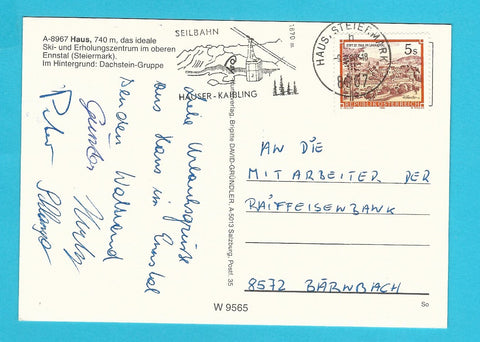 A-8967 Haus, 740 m, das ideale
Ski- und Erholungszentrum im oberen
Ennstal (Steiermark).
Im Hintergrund: Dachstein-Gruppe
SEILBAHN
1870 m
HAUSER-KAIBLING
HAUS, STEIERMARK
8967
5s
REPUBLIK ÖSTERREICH
viele Urlaubsgrüße
aus Haus im Ennstal
senden Waltraud
Günter
Peter
verlag, Brigitte DAVID-GRÜNDLER, A-5013 Salzburg, Postf. 35
AN DIE
MITARBEITER DER
RAIFFEISENBANK
8572 BÄRNBACH
W 9565
So